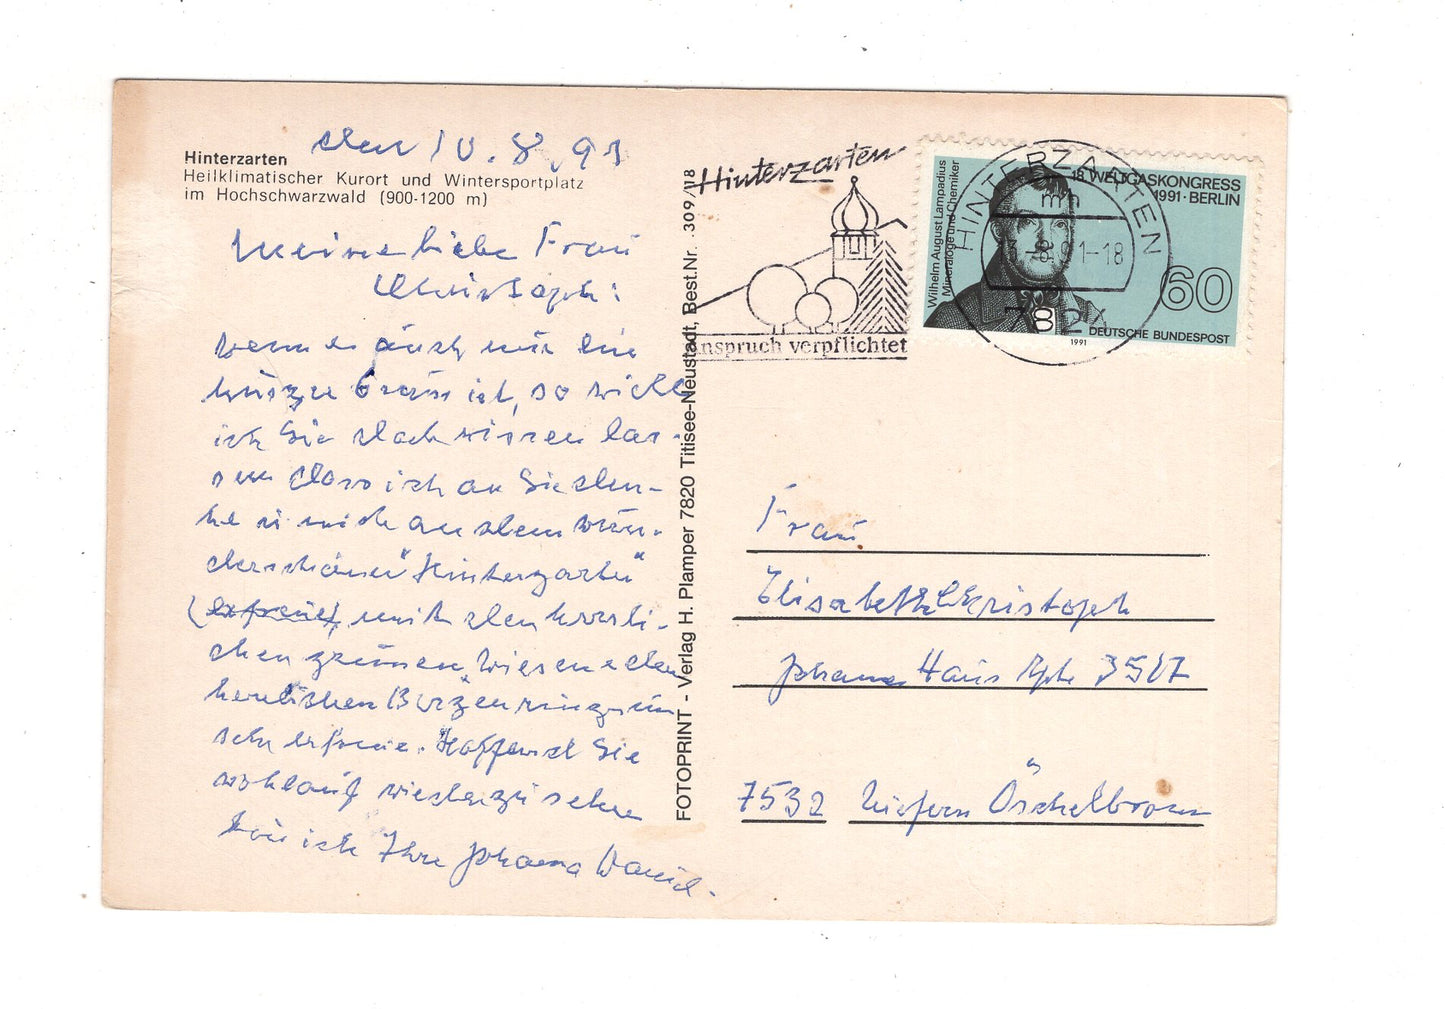 Hinterzarten
Heilklimatischer Kurort und Wintersportplatz
im Hochschwarzwald (900-1200 m)
den 10.8.91
Meine liebe Frau
Christoph:
wenn es auch nur ein
kurzer Gruss ist, so will
ich Sie doch wissen las-
sen dass ich an Sie den-
ke u. mich an dem wun-
derschönen "Hinterzarten"
(erfreue) mit den herrli-
chen grünen Wiesen u. den
herrlichen Bergen rings um
sehr erfreue. Hoffend Sie
wohlauf wiederzusehen
bin ich Ihre Johanna
FOTOPRINT - Verlag H. Plamper 7820 Titisee-Neustadt, Best.Nr. 309/18
Hinterzarten
Anspruch verpflichtet
HINTERZARTEN
mn
-8.91-18
7824
18. WELTGASKONGRESS
1991·BERLIN
Wilhelm August Lampadius
Mineraloge und Chemiker
60
DEUTSCHE BUNDESPOST
1991
Frau
Elisabeth Christoph
Johannes Haus
7532 Niefern Öschelbronn